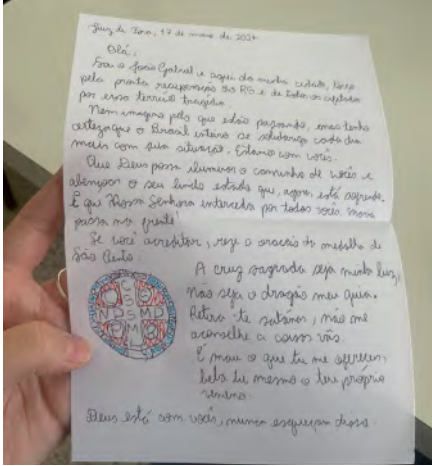 Juiz de Fora, 17 de maio de 2024
Olá,
Sou o João Gabriel e aqui da minha cidade, torço
pela pronta recuperação do RS e de todos os afetados
por essa terrível tragédia.
Nem imagino pelo que estão passando, mas tenho
certeza que o Brasil inteiro se solidariza cada dia
mais com sua situação. Estamos com vocês.
Que Deus possa iluminar o caminho de vocês e
abençoar o seu lindo estado que, agora, está sofrendo.
E que Nossa Senhora interceda por todos vocês,
passa na frente!
Se você acreditar, reze a oração da medalha de
São Bento:
A cruz sagrada seja minha luz,
não seja o dragão meu guia.
Retira-te satanás, não me
aconselhe a coisas vãs.
É mau o que tu me ofereces,
beba tu mesmo o teu próprio
veneno.
C
S
N D S M D
M
Deus está com vocês, nunca esqueçam disso.